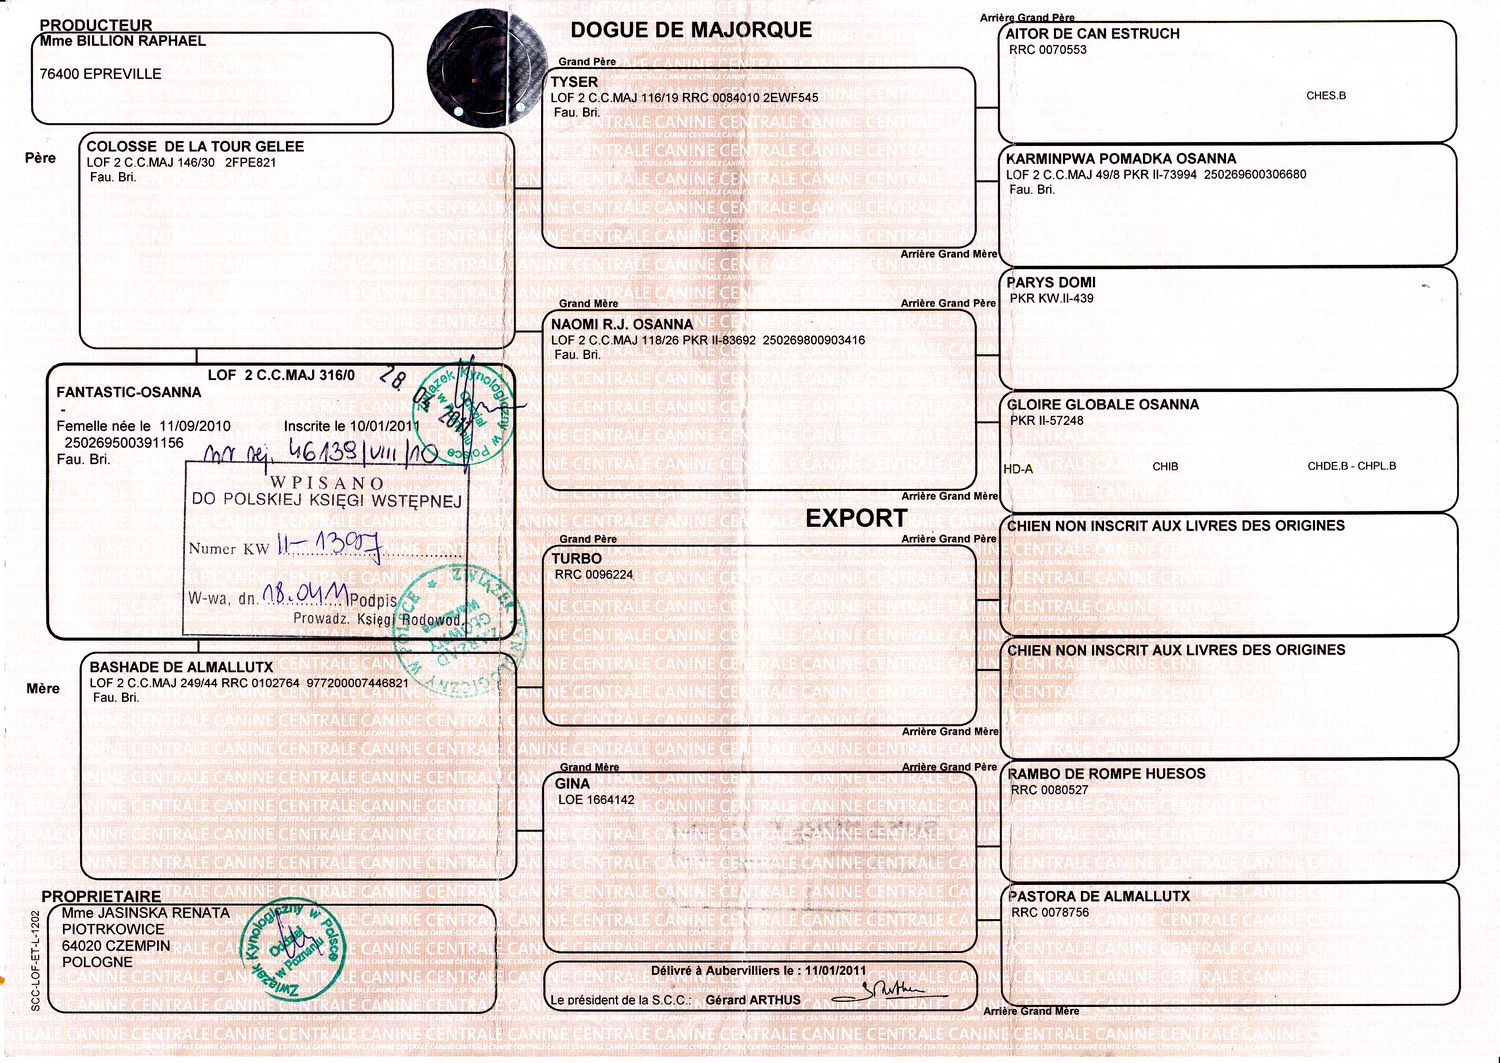 PRODUCTEUR
Mme BILLION RAPHAEL
76400 EPREVILLE
DOGUE DE MAJORQUE
Père
COLOSSE DE LA TOUR GELEE
LOF 2 C.C.MAJ 146/30 2FPE821
Fau. Bri.
LOF 2 C.C.MAJ 316/0
FANTASTIC-OSANNA
-
Femelle née le 11/09/2010 Inscrite le 10/01/2011
250269500391156
Fau. Bri.
28. 04 2011
Związek Kynologiczny w Polsce
Oddział
w Poznaniu
nr rej. 46139/VIII/10
WPISANO
DO POLSKIEJ KSIĘGI WSTĘPNEJ
Numer KW II-1397
W-wa, dn. 18.04.11 Podpis
Prowadz. Księgi Rodowod.
ZWIĄZEK KYNOLOGICZNY W POLSCE
ZARZĄD
GŁÓWNY
Mère
BASHADE DE ALMALLUTX
LOF 2 C.C.MAJ 249/44 RRC 0102764 977200007446821
Fau. Bri.
PROPRIETAIRE
Mme JASINSKA RENATA
PIOTRKOWICE
64020 CZEMPIN
POLOGNE
Związek Kynologiczny w Polsce
Oddział
w Poznaniu
SCC-LOF-ET-L-1202
Grand Père
TYSER
LOF 2 C.C.MAJ 116/19 RRC 0084010 2EWF545
Fau. Bri.
Grand Mère
NAOMI R.J. OSANNA
LOF 2 C.C.MAJ 118/26 PKR II-83692 250269800903416
Fau. Bri.
EXPORT
Grand Père
TURBO
RRC 0096224
Grand Mère
GINA
LOE 1664142
Délivré à Aubervilliers le : 11/01/2011
Le président de la S.C.C.: Gérard ARTHUS
Arrière Grand Père
AITOR DE CAN ESTRUCH
RRC 0070553
CHES.B
KARMINPWA POMADKA OSANNA
LOF 2 C.C.MAJ 49/8 PKR II-73994 250269600306680
Fau. Bri.
Arrière Grand Mère
Arrière Grand Père
PARYS DOMI
PKR KW.II-439
GLOIRE GLOBALE OSANNA
PKR II-57248
HD-A CHIB CHDE.B - CHPL.B
Arrière Grand Mère
Arrière Grand Père
CHIEN NON INSCRIT AUX LIVRES DES ORIGINES
CHIEN NON INSCRIT AUX LIVRES DES ORIGINES
Arrière Grand Mère
Arrière Grand Père
RAMBO DE ROMPE HUESOS
RRC 0080527
PASTORA DE ALMALLUTX
RRC 0078756
Arrière Grand Mère
CENTRALE CANINE